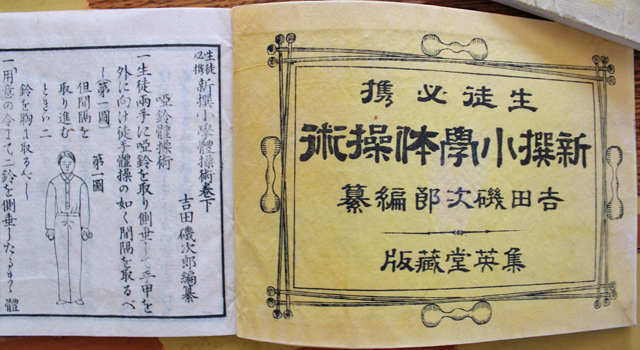 生徒必携
新撰小學体操術
吉田磯次郎編纂
集英堂藏版
生徒必携 新撰小學體操術卷下
吉田磯次郎編纂
啞鈴體操術
一生徒兩手に啞鈴を取り側垂し手甲を
外に向け徒手體操の如く間隔を取るべ
し(第一圖)
但間隔を
取り進む
ときハ二
鈴を胸に取るべし
第一圖
一用意の令にて二鈴を側垂し
體